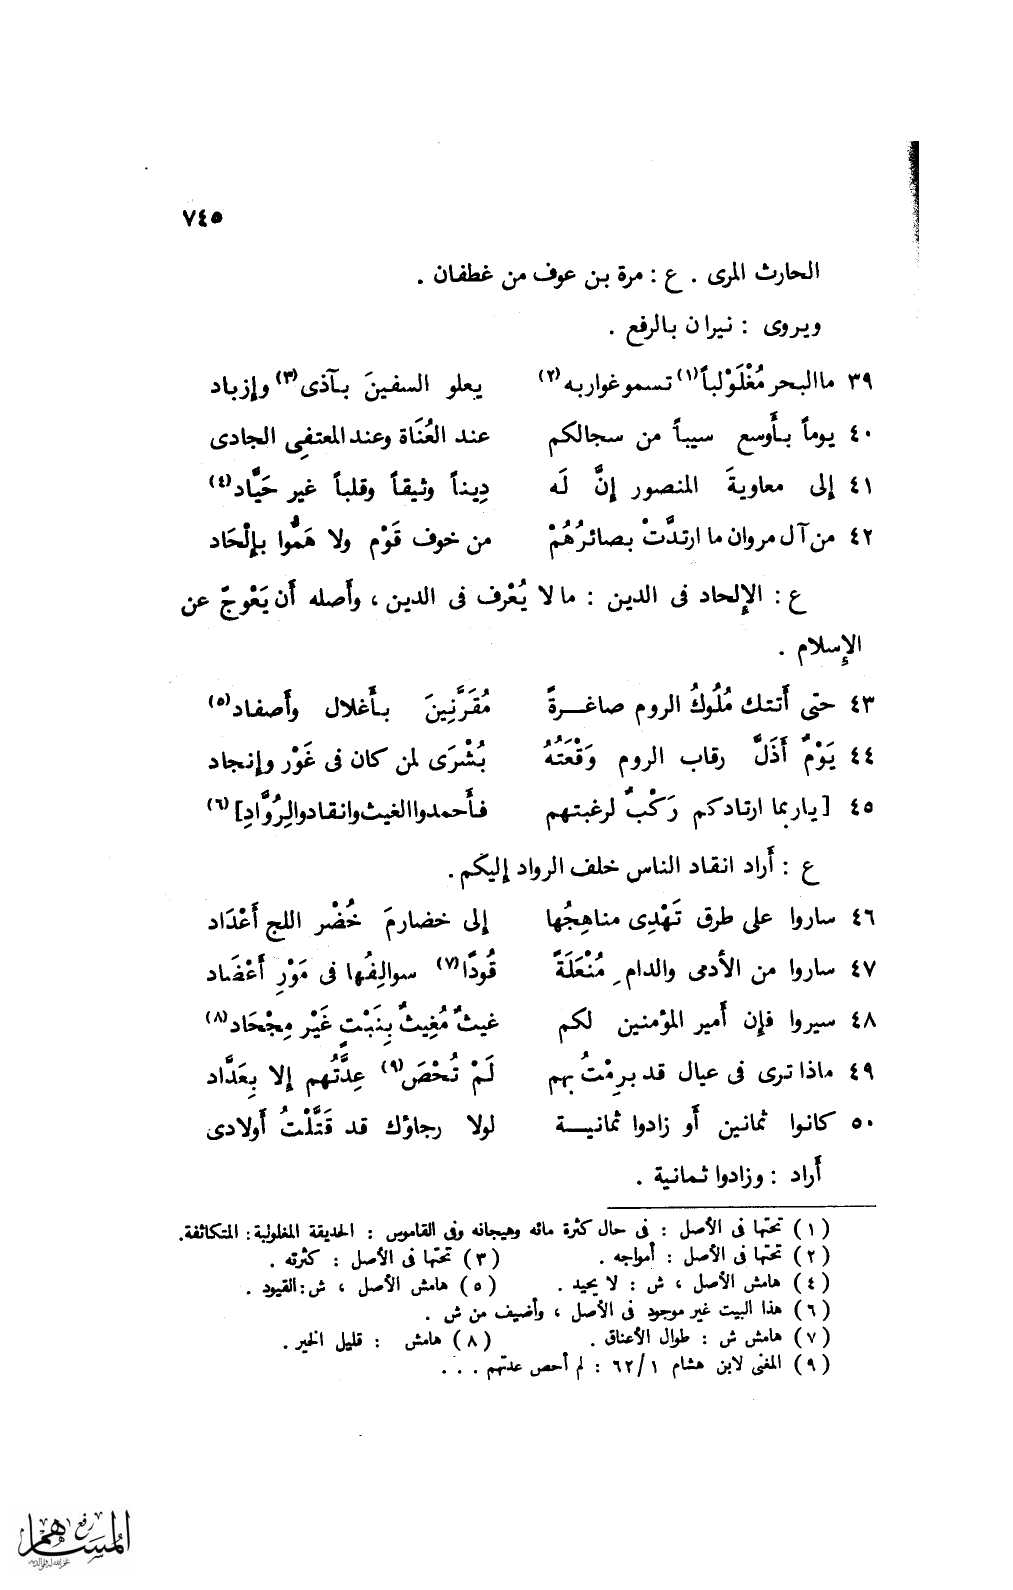 ٧٤٥
الحارث المرى . ع : مرة بن عوف من غطفان .
ويروى : نيران بالرفع .
٣٩ ما البحر مُغْلَوْلباً (١) تسمو غواربه (٢) يعلو السفينَ بآذى (٣) وإزباد
٤٠ يوماً بأَوسع سيباً من سجالكم عند العُنَاة وعند المعتفِى الجادى
٤١ إلى معاويةَ المنصور إنَّ لَه دِيناً وثيقاً وقلباً غير حَيَّاد (٤)
٤٢ من آل مروان ما ارتدَّتْ بصائرُهُمْ من خوف قَوْم ولا هَمُّوا بإلْحَاد
ع : الإلحاد فى الدين : ما لا يُعْرف فى الدين ، وأَصله أَن يَعْوجّ عن
الإسلام .
٤٣ حتى أَتتك مُلُوكُ الروم صاغرةً مُقَرَّنِينَ بأَغلال وأَصفاد (٥)
٤٤ يَوْمٌ أَذَلَّ رقاب الروم وَقْعَتُهُ بُشْرَى لمن كان فى غَوْر وإنجاد
٤٥ [ يا ربما ارتادكم رَكْبٌ لرغبتهم فأَحمدوا الغيث وانقادوا لِرُوَّادِ ] (٦)
ع : أَراد انقاد الناس خلف الرواد إليكم .
٤٦ ساروا على طرق تَهْدِى مناهِجُها إلى خضارمَ خُضْر اللج أَعْدَاد
٤٧ ساروا من الأدمى والدامِ مُنْعَلَةً قُودًا (٧) سوالِفُها فى مَوْرِ أَعْضَاد
٤٨ سيروا فإن أَمير المؤمنين لكم غيثٌ مُغِيثٌ بِنَبْتٍ غَيْر مِجْحَاد (٨)
٤٩ ماذا ترى فى عيال قد برِمْتُ بهم لَمْ تُحْصَ (٩) عِدَّتُهم إلا بِعَدَّاد
٥٠ كانوا ثمانين أَو زادوا ثمانية لولا رجاؤك قد قَتَّلْتُ أَولادى
أَراد : وزادوا ثمانية .
(١) تحتها فى الأصل : فى حال كثرة مائه وهيجانه وفى القاموس : الحديقة المغلولبة : المتكاثفة .
(٢) تحتها فى الأصل : أمواجه . (٣) تحتها فى الأصل : كثرته .
(٤) هامش الأصل ، ش : لا يحيد . (٥) هامش الأصل ، ش : القيود .
(٦) هذا البيت غير موجود فى الأصل ، وأضيف من ش .
(٧) هامش ش : طوال الأعناق . (٨) هامش : قليل الخير .
(٩) المغنى لابن هشام ١/ ٦٢ : لم أحص عدتهم . . .
المساهم